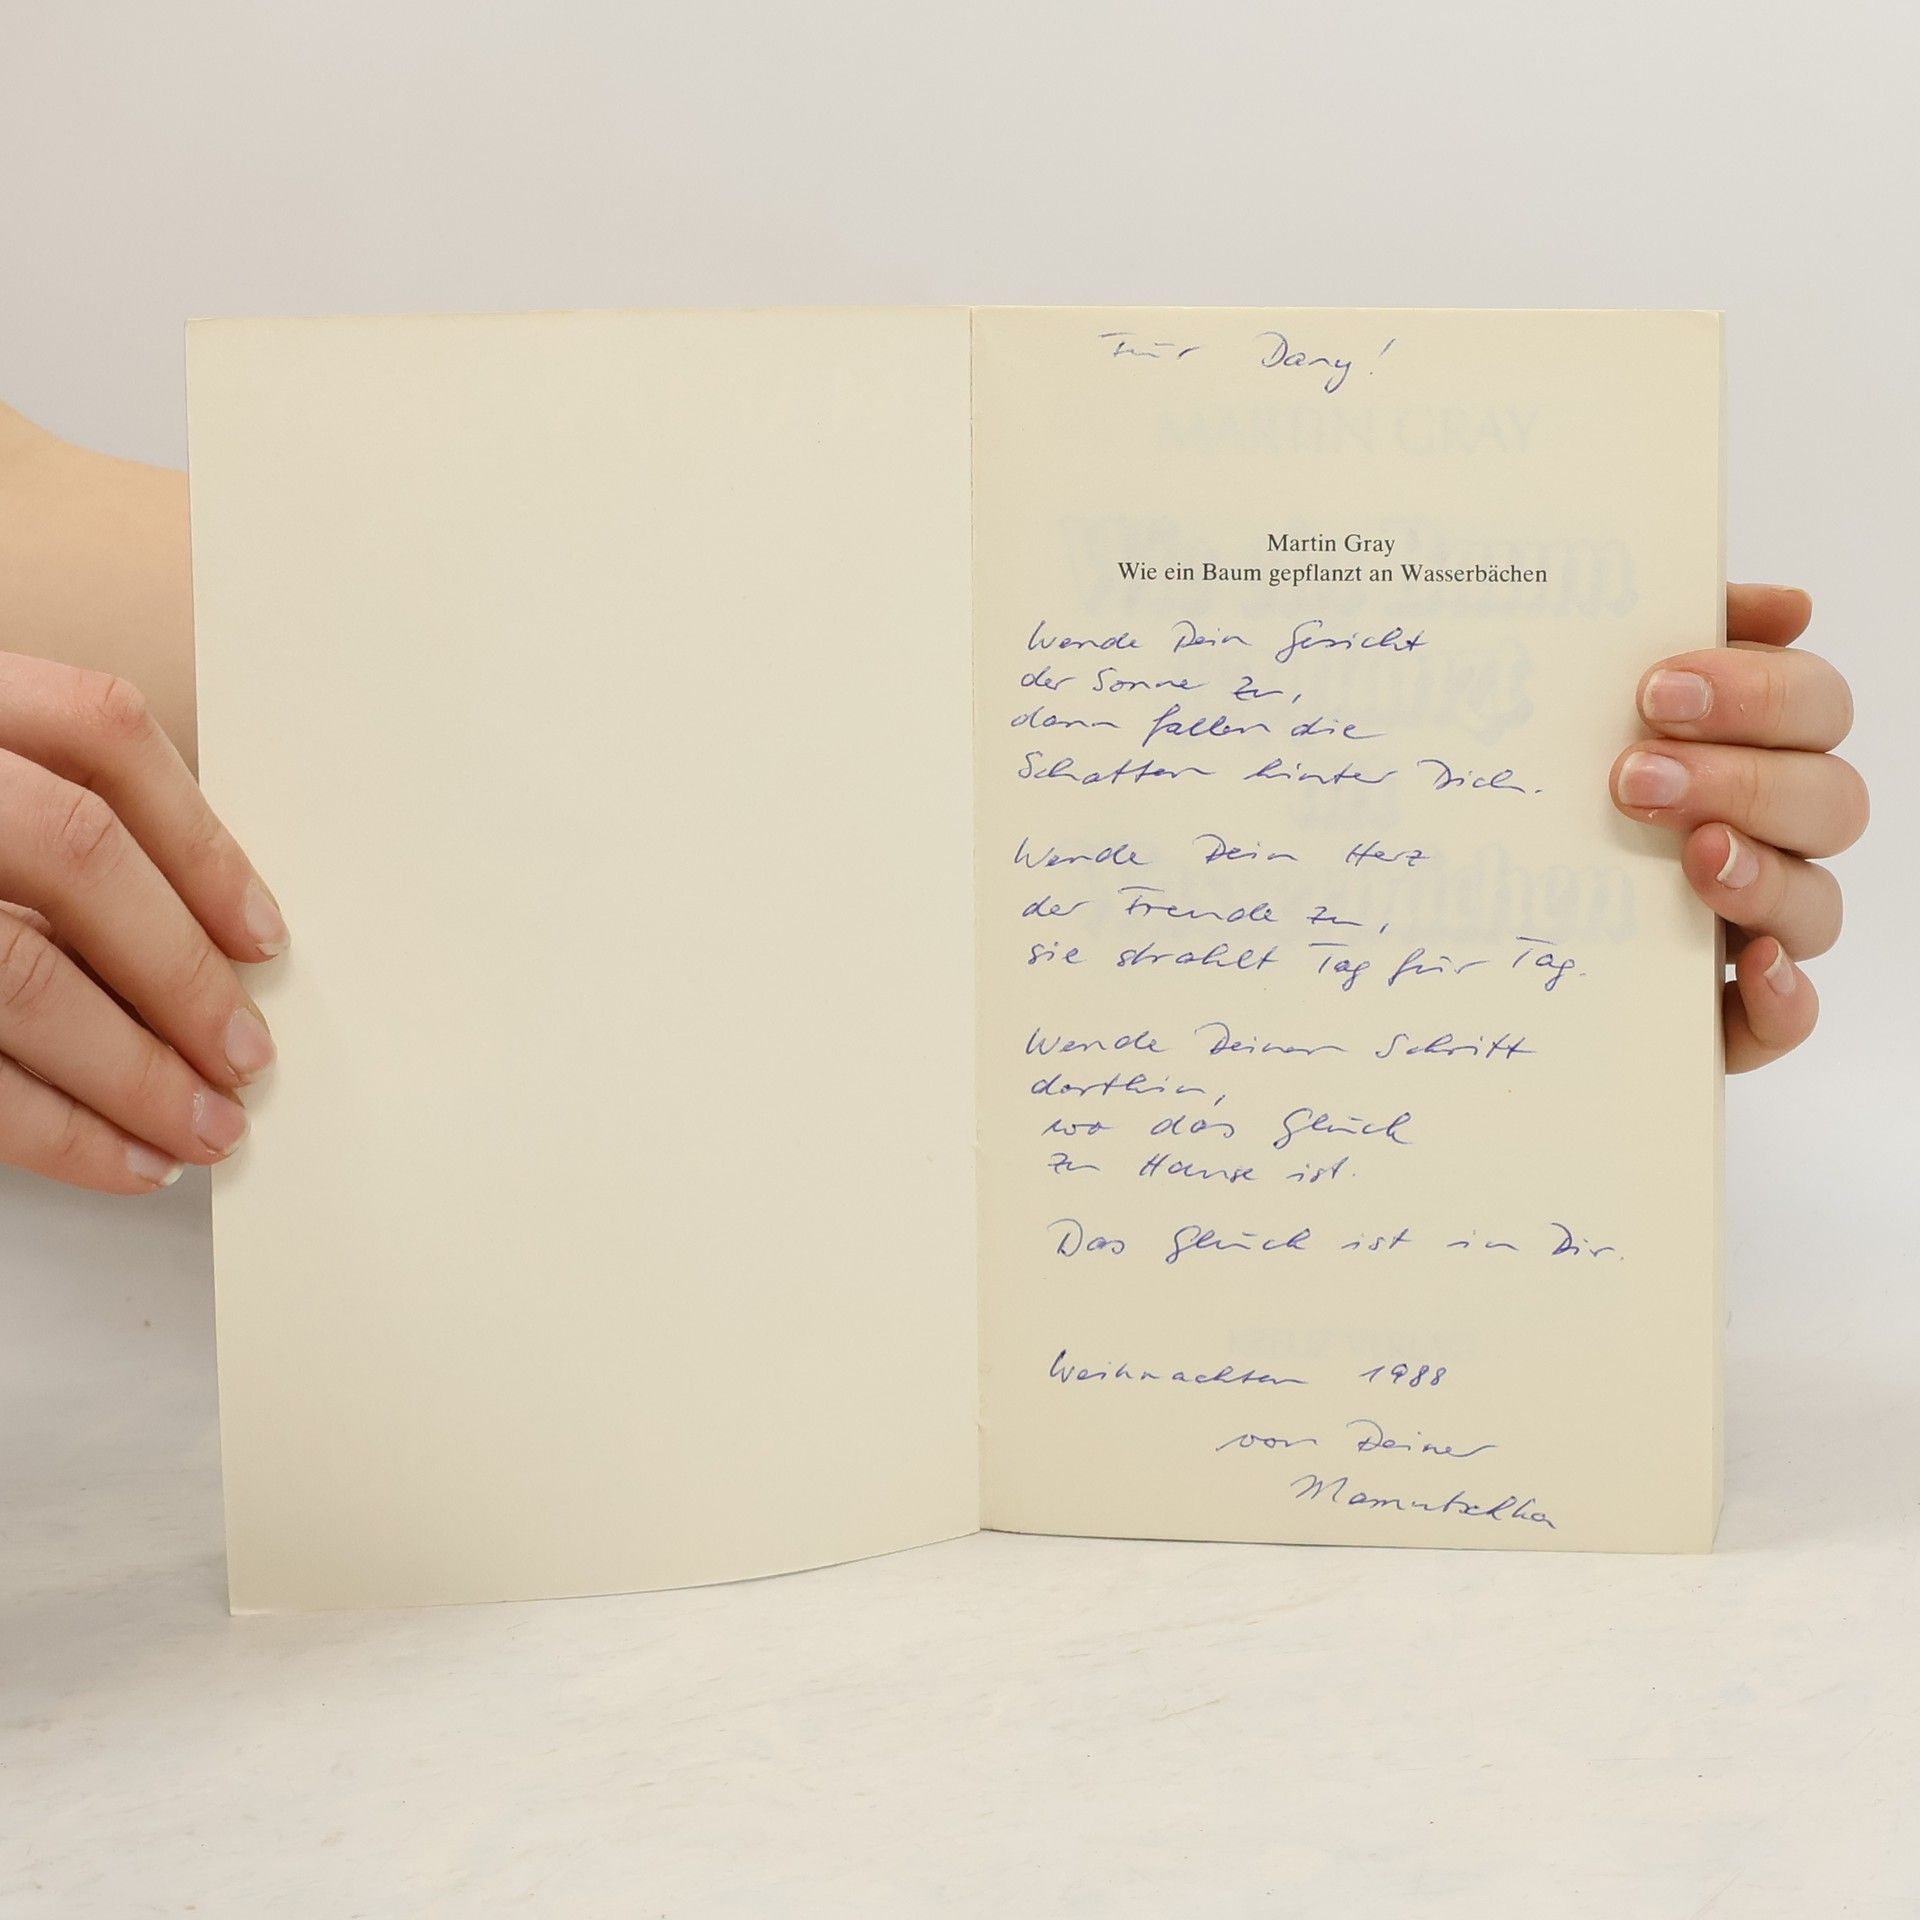 Für Dany!
Martin Gray
Wie ein Baum gepflanzt an Wasserbächen
Wende Dein Gesicht
der Sonne zu,
dann fallen die
Schatten hinter Dich.
Wende Dein Herz
der Freude zu,
sie strahlt Tag für Tag.
Wende Deinen Schritt
dorthin,
wo das Glück
zu Hause ist.
Das Glück ist in Dir.
Weihnachten 1988
von Deiner
Mamutschka